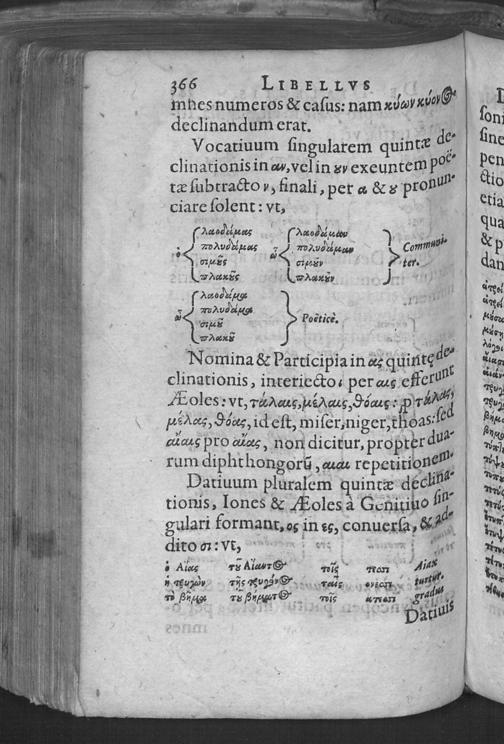 366 LIBELLVS
mnes numeros & casus: nam κύων κύονος
declinandum erat.
Vocatiuum singularem quintæ de-
clinationis in αν, vel in ουν exeuntem poë-
tæ subtracto ν, finali, per α & ου pronun-
ciare solent: vt,
ὁ { λαοδάμας
πολυδάμας
σιμοῦς
πλακοῦς
ὦ { λαοδάμαν
πολυδάμαν
σιμοῦν
πλακοῦν } Communi-
ter.
ὦ { λαοδάμα
πολυδάμα
σιμοῦ
πλακοῦ } Poëticè.
Nomina & Participia in ας quintę de-
clinationis, interiecto ι per αις efferunt
Æoles: vt, τάλαις, μέλαις, θόαις: ꝓ τάλας,
μέλας, θόας, id est, miser, niger, thoas: sed
αἴαις pro αἴας, non dicitur, propter dua-
rum diphthongorū, αιαι repetitionem.
Datiuum pluralem quintæ declina-
tionis, Iones & Æoles à Genitiuo sin-
gulari formant, ος in ες, conuersa, & ad-
dito σι: vt,
ὁ Αἴας τοῦ Αἴαντος τοῖς Aiax
ἡ τρυγὼν τῆς τρυγόνος ταῖς turtur.
τὸ βῆμα τοῦ βήματος τοῖς gradus
Datiuis